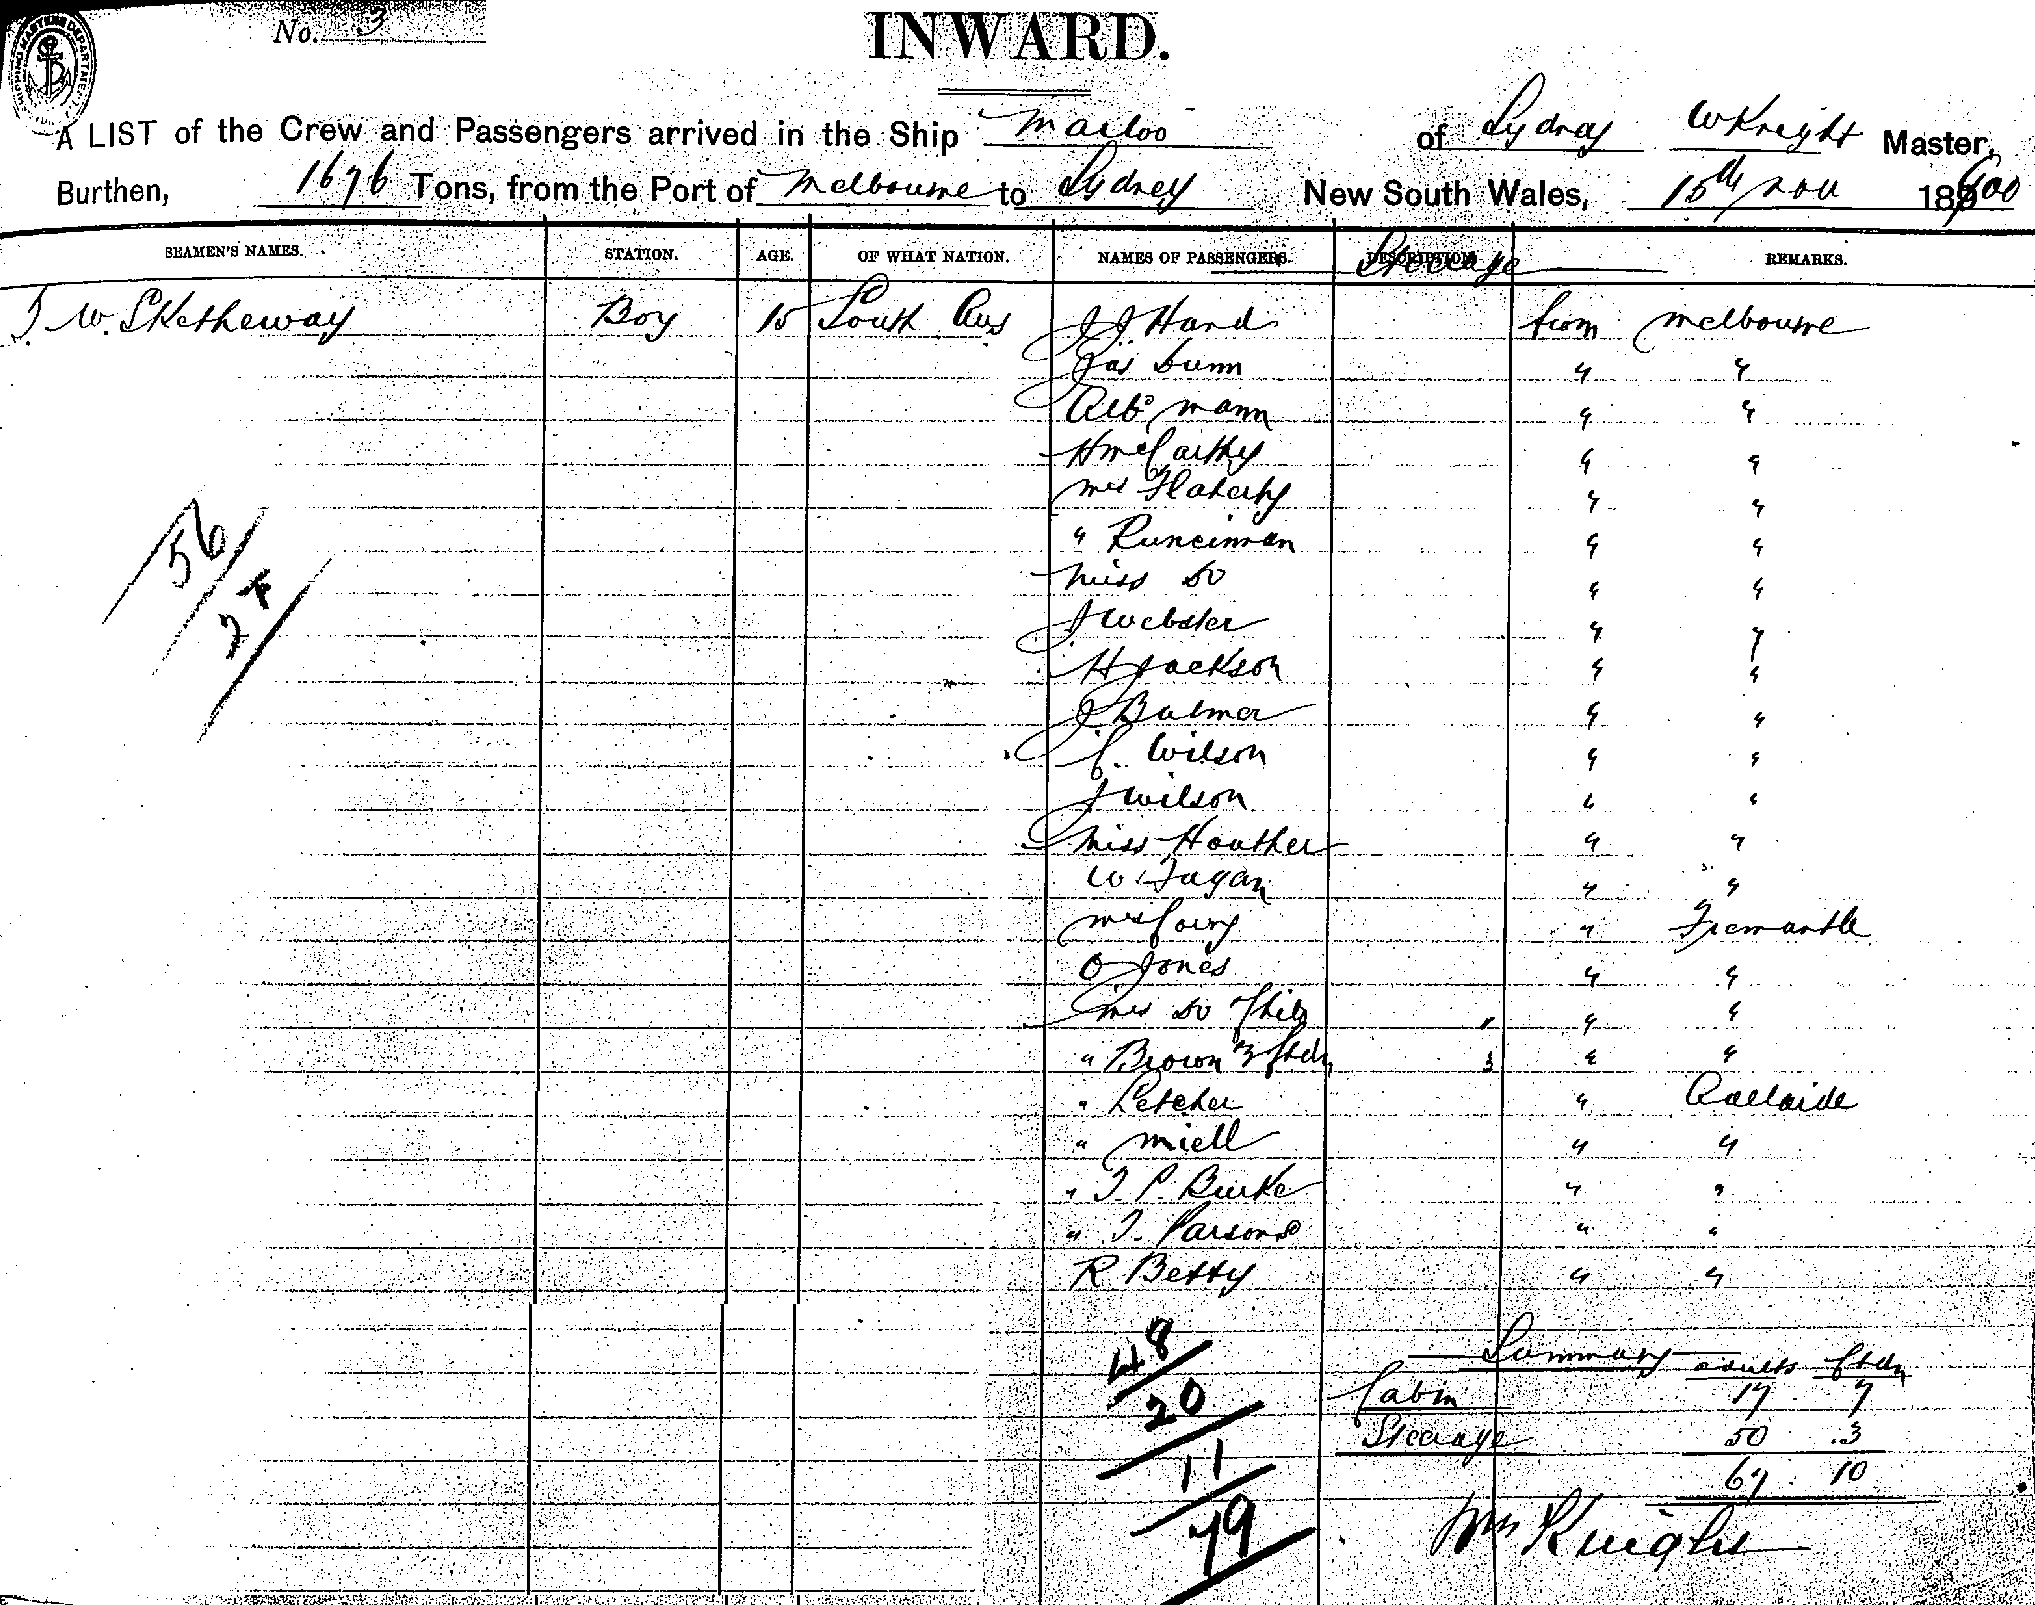 No. 3
INWARD.
A LIST of the Crew and Passengers arrived in the Ship Marloo of Sydney W Knight Master,
Burthen, 1696 Tons, from the Port of Melbourne to Sydney New South Wales, 15th Nov 1900
SEAMEN'S NAMES. STATION. AGE. OF WHAT NATION. NAMES OF PASSENGERS. Steerage REMARKS.
T. W. Sketheway Boy 15 South Aus J J Hand from Melbourne
Jas Dunn " "
Alb. Mann " "
H McCarthy " "
Mrs Flaherty " "
" Runcinman " "
Miss Do " "
J Webster " "
H Jackson " "
J Balmer " "
C. Wilson " "
J Wilson " "
Miss Houther " "
W. Fagan " "
Mrs " Fremantle
O Jones " "
Mrs Do Child 1 " "
" Brown 3 Chdn 3 " "
" Letcher " Adelaide
" Miell " "
" T. P. Burke " "
" T. Parsons " "
R Betty " "
56
24
48
20
11
79
Summary Adults Chdn
Cabin 17 7
Steerage 50 3
67 10
Wm Knight